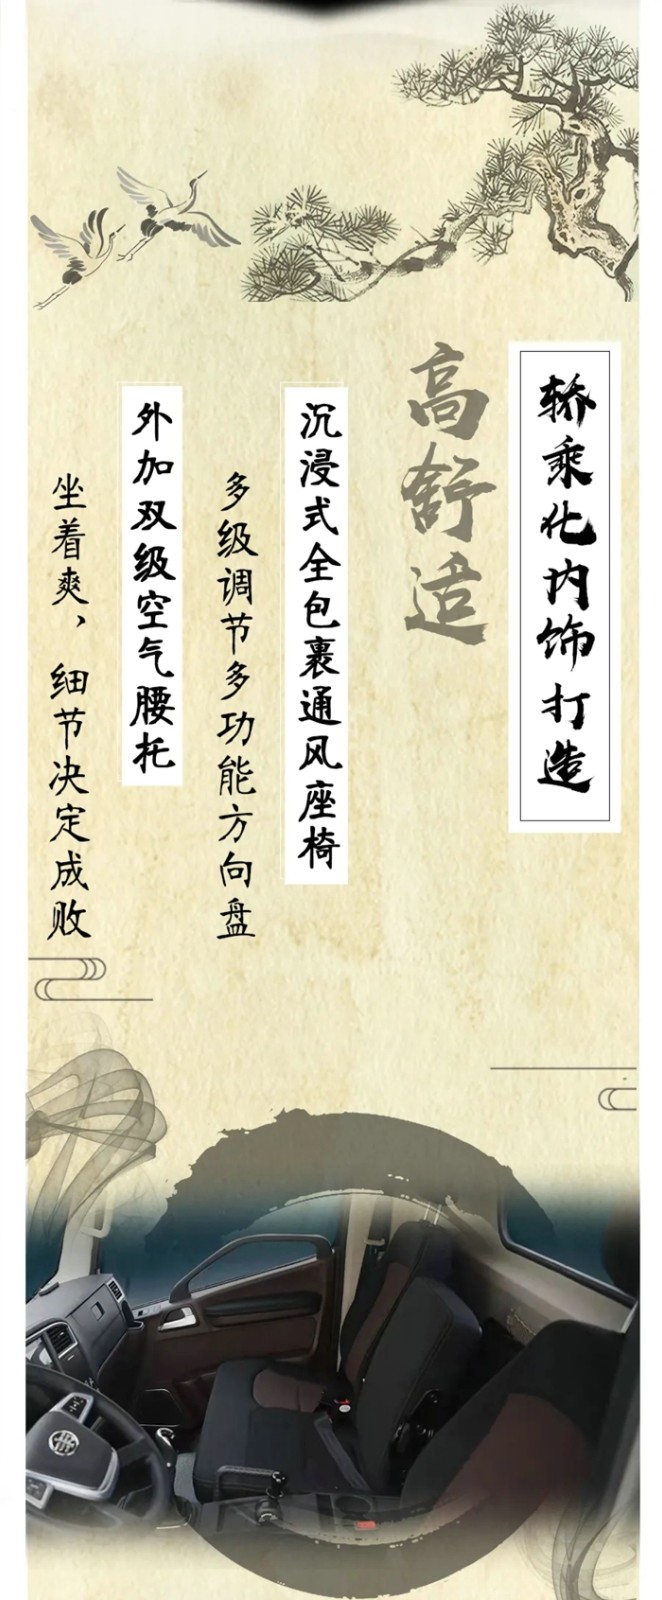 轿乘化内饰打造
高舒适
沉浸式全包裹通风座椅
多级调节多功能方向盘
外加双级空气腰托
坐着爽，细节决定成败